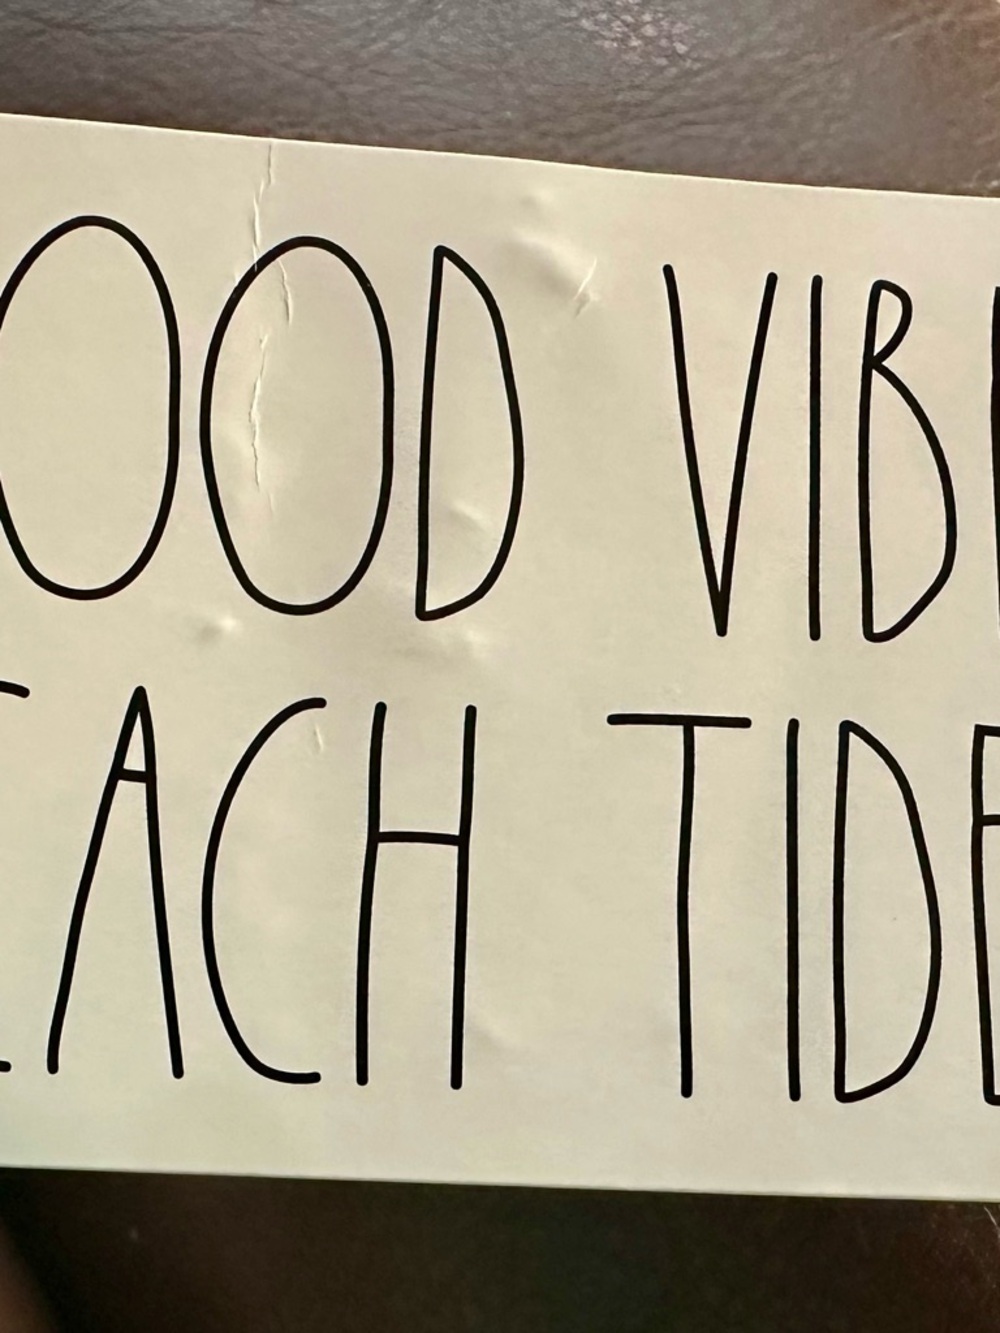 OOD VIB
EACH TIDE